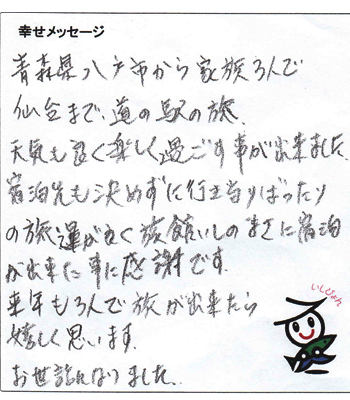 幸せメッセージ
青森県八戸市から家族3人で
仙台まで、道の駅の旅。
天気も良く楽しく過ごす事が出来ました。
宿泊先も決めずに行き当りばったり
の旅運が良く旅館いしのまきに宿泊
が出来た事に感謝です。
来年も3人で旅が出来たら
嬉しく思います。
お世話になりました。
いしぴょん